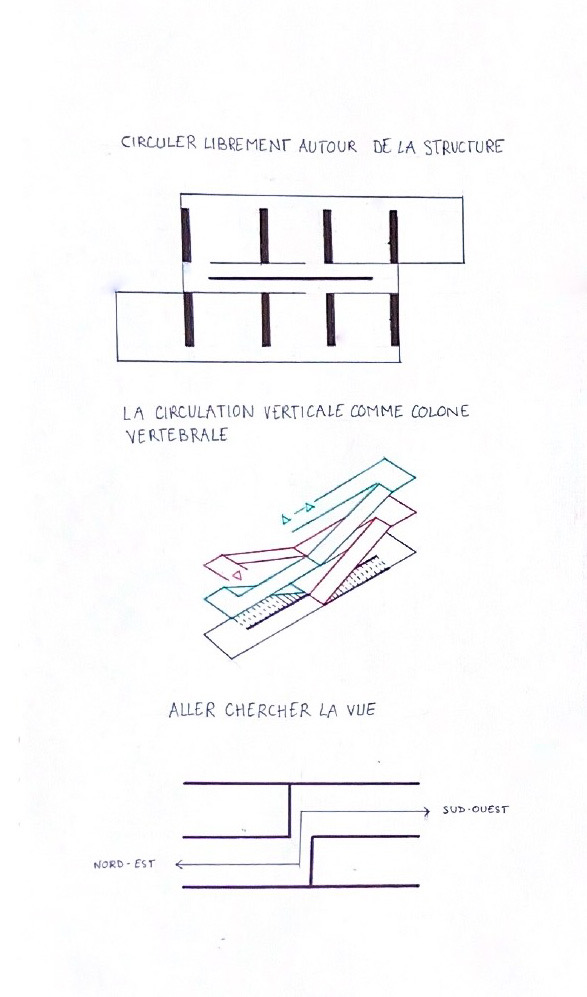 CIRCULER LIBREMENT AUTOUR DE LA STRUCTURE
LA CIRCULATION VERTICALE COMME COLONE
VERTEBRALE
ALLER CHERCHER LA VUE
SUD-OUEST
NORD-EST